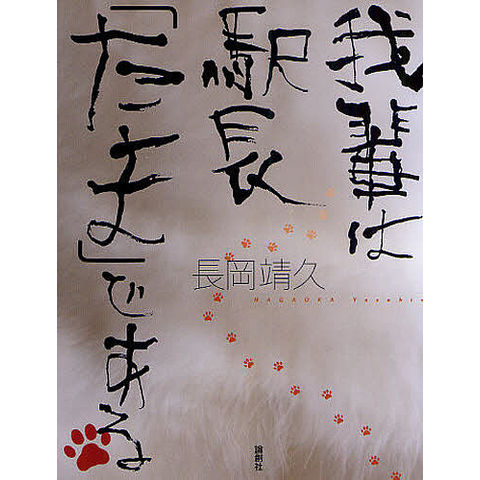 我輩は
駅長
「たま」である
長岡靖久
NAGAOKA Yasuhisa
論創社